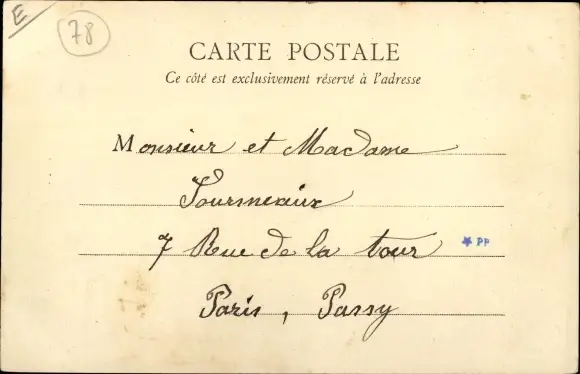 E
78
CARTE POSTALE
Ce côté est exclusivement réservé à l'adresse
Monsieur et Madame
Tourneaux
7 Rue de la tour
★ PP
Paris, Passy